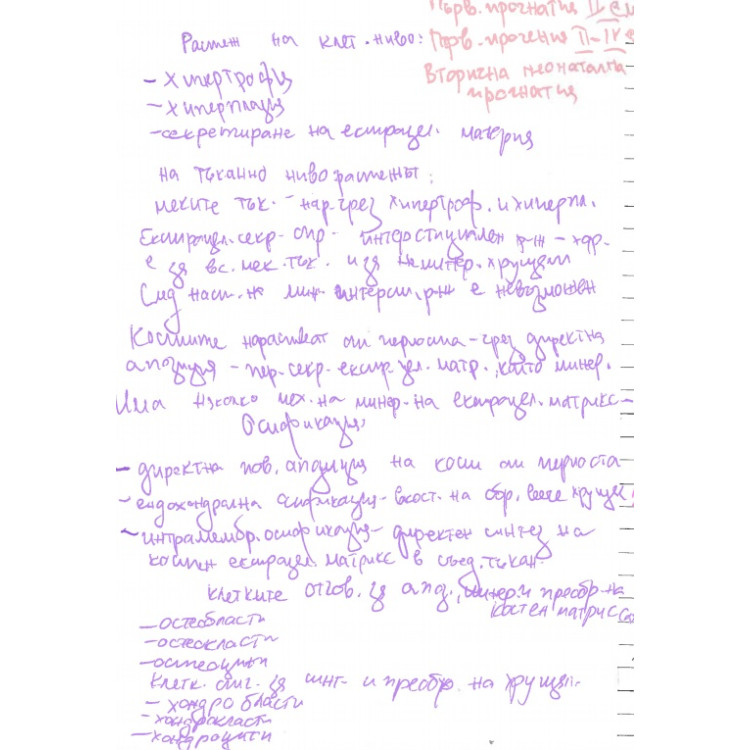 Първ. прогнатия II
Растеж на клет. ниво: Първ. прогения II-IV
Вторична неонатална
прогнатия
- Хипертрофия
- Хиперплазия
- секретиране на екстрацел. материя
на тъканно ниво растежът:
меките тък. - нар. чрез хипертроф. и хиперпл.
Екстрацел. секр. стр - интерстициален р-ж - хар.
е за вс. мек. тък. и за неминер. хрущяли
След наст. на мин. интерстиц. р-ж е невъзможен
Костите нарастват от периоста - чрез директна
апозиция - пер. секр. екстр. цел. матр., който минер.
Има няколко мех. на минер. на екстрацел. матрикс -
Осификация:
- директна пов. апозиция на кост от периоста
- ендохондрална осификация - вкост. на обр. вече хрущял
- интрамембр. осификация - директен синтез на
костен екстрацел. матрикс в съед. тъкан
Клетките отгов. за апоз., минер. и преобр. на
костен матрикс са
- остеобласти
- остеокласти
- остеоцити
Клетк. отг. за синт. и преобр. на хрущял.
- хондробласти
- хондрокласти
- хондроцити